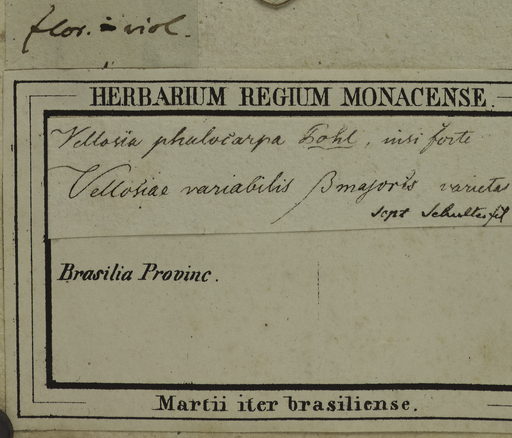 flor. = viol.
HERBARIUM REGIUM MONACENSE.
Vellosia phalocarpa Pohl, nisi forte
Vellosiae variabilis β majoris varietas
scps. Schultes fil
Brasilia Provinc.
Martii iter brasiliense.